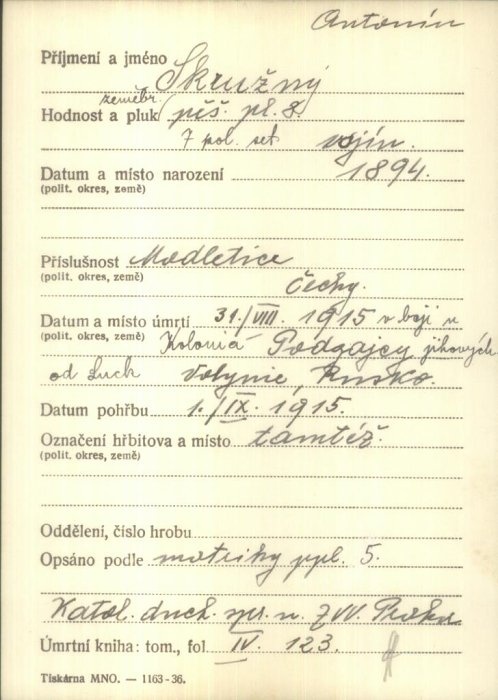 Antonín
Příjmení a jméno Skružný
zeměbr.
Hodnost a pluk pěš. pl. 8.
7 pol. set. vojín.
Datum a místo narození 1894.
(polit. okres, země)
Příslušnost Modletice
(polit. okres, země) Čechy.
Datum a místo úmrtí 31./VIII. 1915 v boji u
(polit. okres, země) Kolonia Podgajcy jihových
od Luck Volynie, Rusko.
Datum pohřbu 1./IX. 1915.
Označení hřbitova a místo tamtéž.
(polit. okres, země)
Oddělení, číslo hrobu
Opsáno podle matriky ppl. 5.
Katol. duch. spr. u ZVV. Praha
Úmrtní kniha: tom., fol IV. 123.
Tiskárna MNO. — 1163-36.